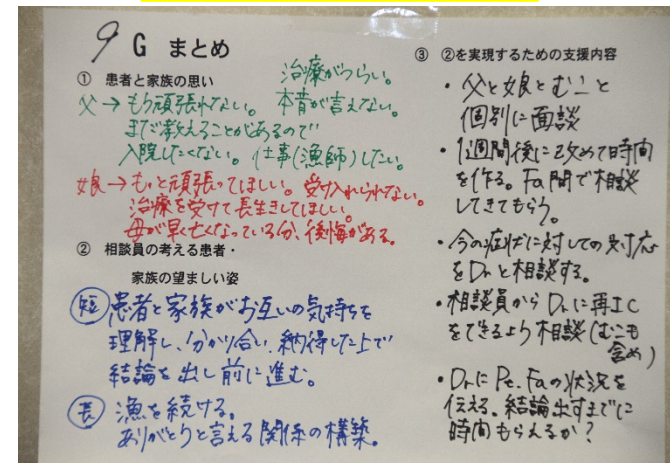 9 G まとめ
① 患者と家族の思い
治療がつらい。
父→もう頑張れない。本音が言えない。
まだ教えることがあるので
入院したくない。仕事(漁師)したい。
娘→もっと頑張ってほしい。受け入れられない。
治療を受けて長生きしてほしい。
母が早く亡くなっている分、後悔がある。
② 相談員の考える患者・
家族の望ましい姿
短 患者と家族がお互いの気持ちを
理解し、分かり合い、納得した上で
結論を出し前に進む。
長 漁を続ける。
ありがとうと言える関係の構築。
③ ②を実現するための支援内容
・父と娘とむこと
個別に面談
・1週間後に改めて時間
を作る。Fa間で相談
してきてもらう。
・今の症状に対しての対応
をDrと相談する。
・相談員からDrに再IC
をできるよう相談(むこも
含め)
・DrにPt、Faの状況を
伝える。結論出すまでに
時間もらえるか?